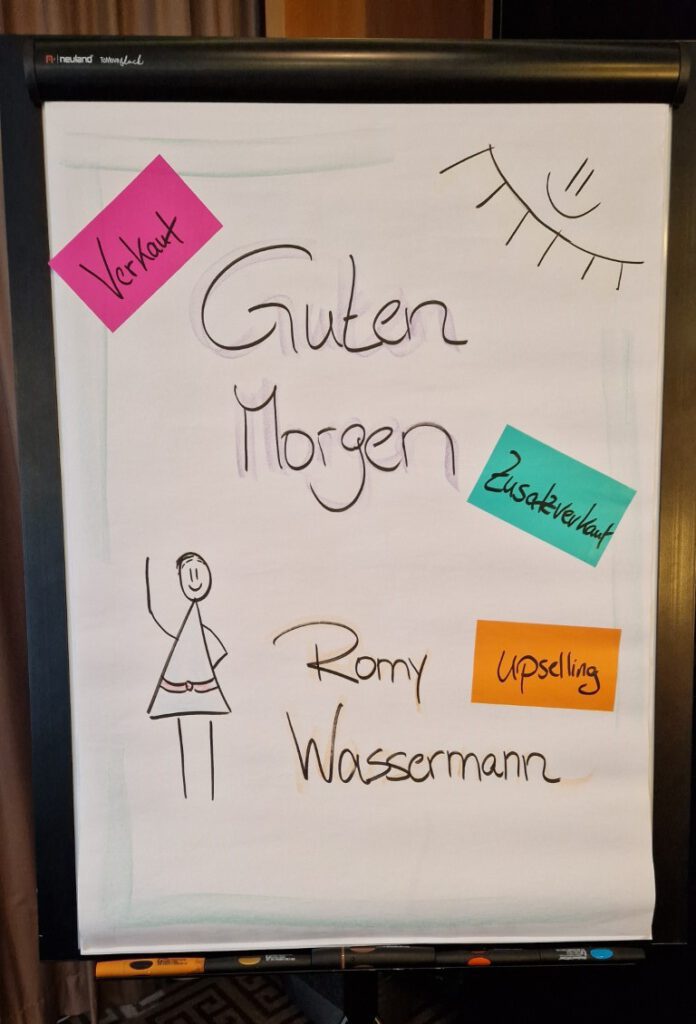 neuland
Verkauf
Guten
Morgen
Zusatzverkauf
Romy
upselling
Wassermann